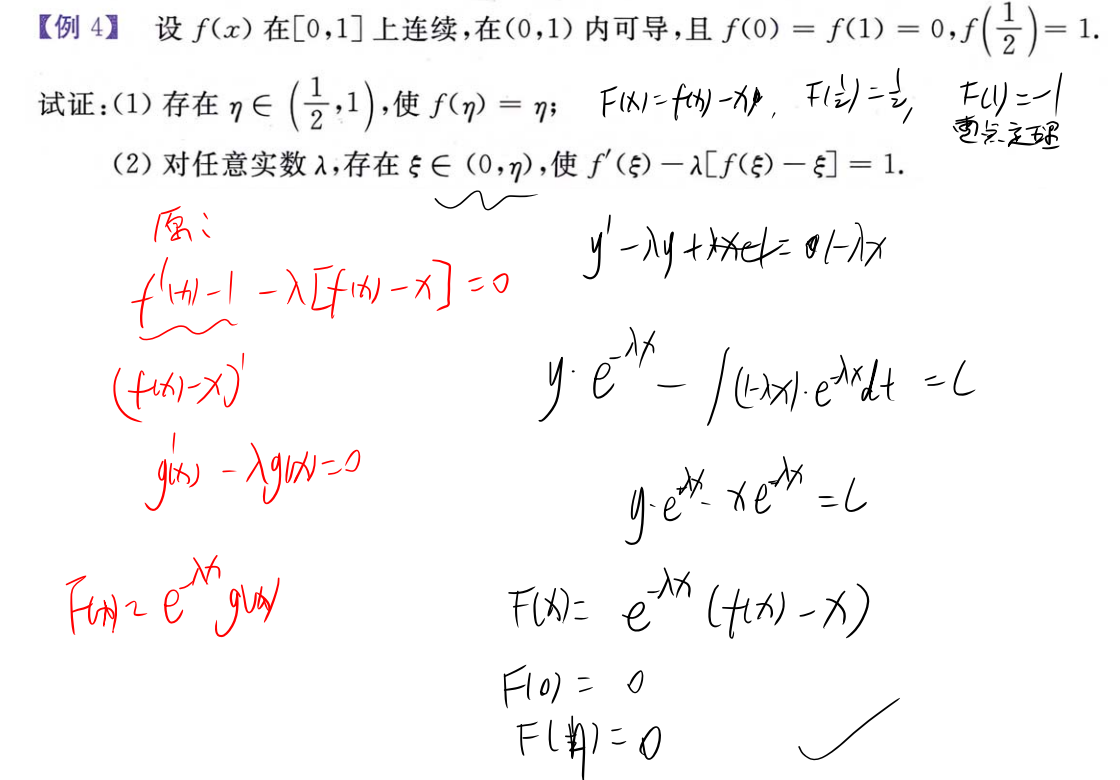 【例 4】 设 f(x) 在[0,1] 上连续,在(0,1) 内可导,且 f(0) = f(1) = 0,f(1/2) = 1.
试证:(1) 存在 η ∈ (1/2,1),使 f(η) = η; F(x)=f(x)-x, F(1/2)=1/2, F(1)=-1
零点定理
(2) 对任意实数 λ,存在 ξ ∈ (0,η),使 f′(ξ) − λ[f(ξ) − ξ] = 1.
原:
f'(x)-1 -λ[f(x)-x]=0
(f(x)-x)'
g'(x) -λg(x)=0
F(x)= e^{-λx} g(x)
y'-λy = 1-λx
y·e^{-λx} - ∫(1-λx)·e^{-λx}dt = C
y·e^{-λx} - xe^{-λx} = C
F(x)= e^{-λx} (f(x)-x)
F(0) = 0
F(η)=0